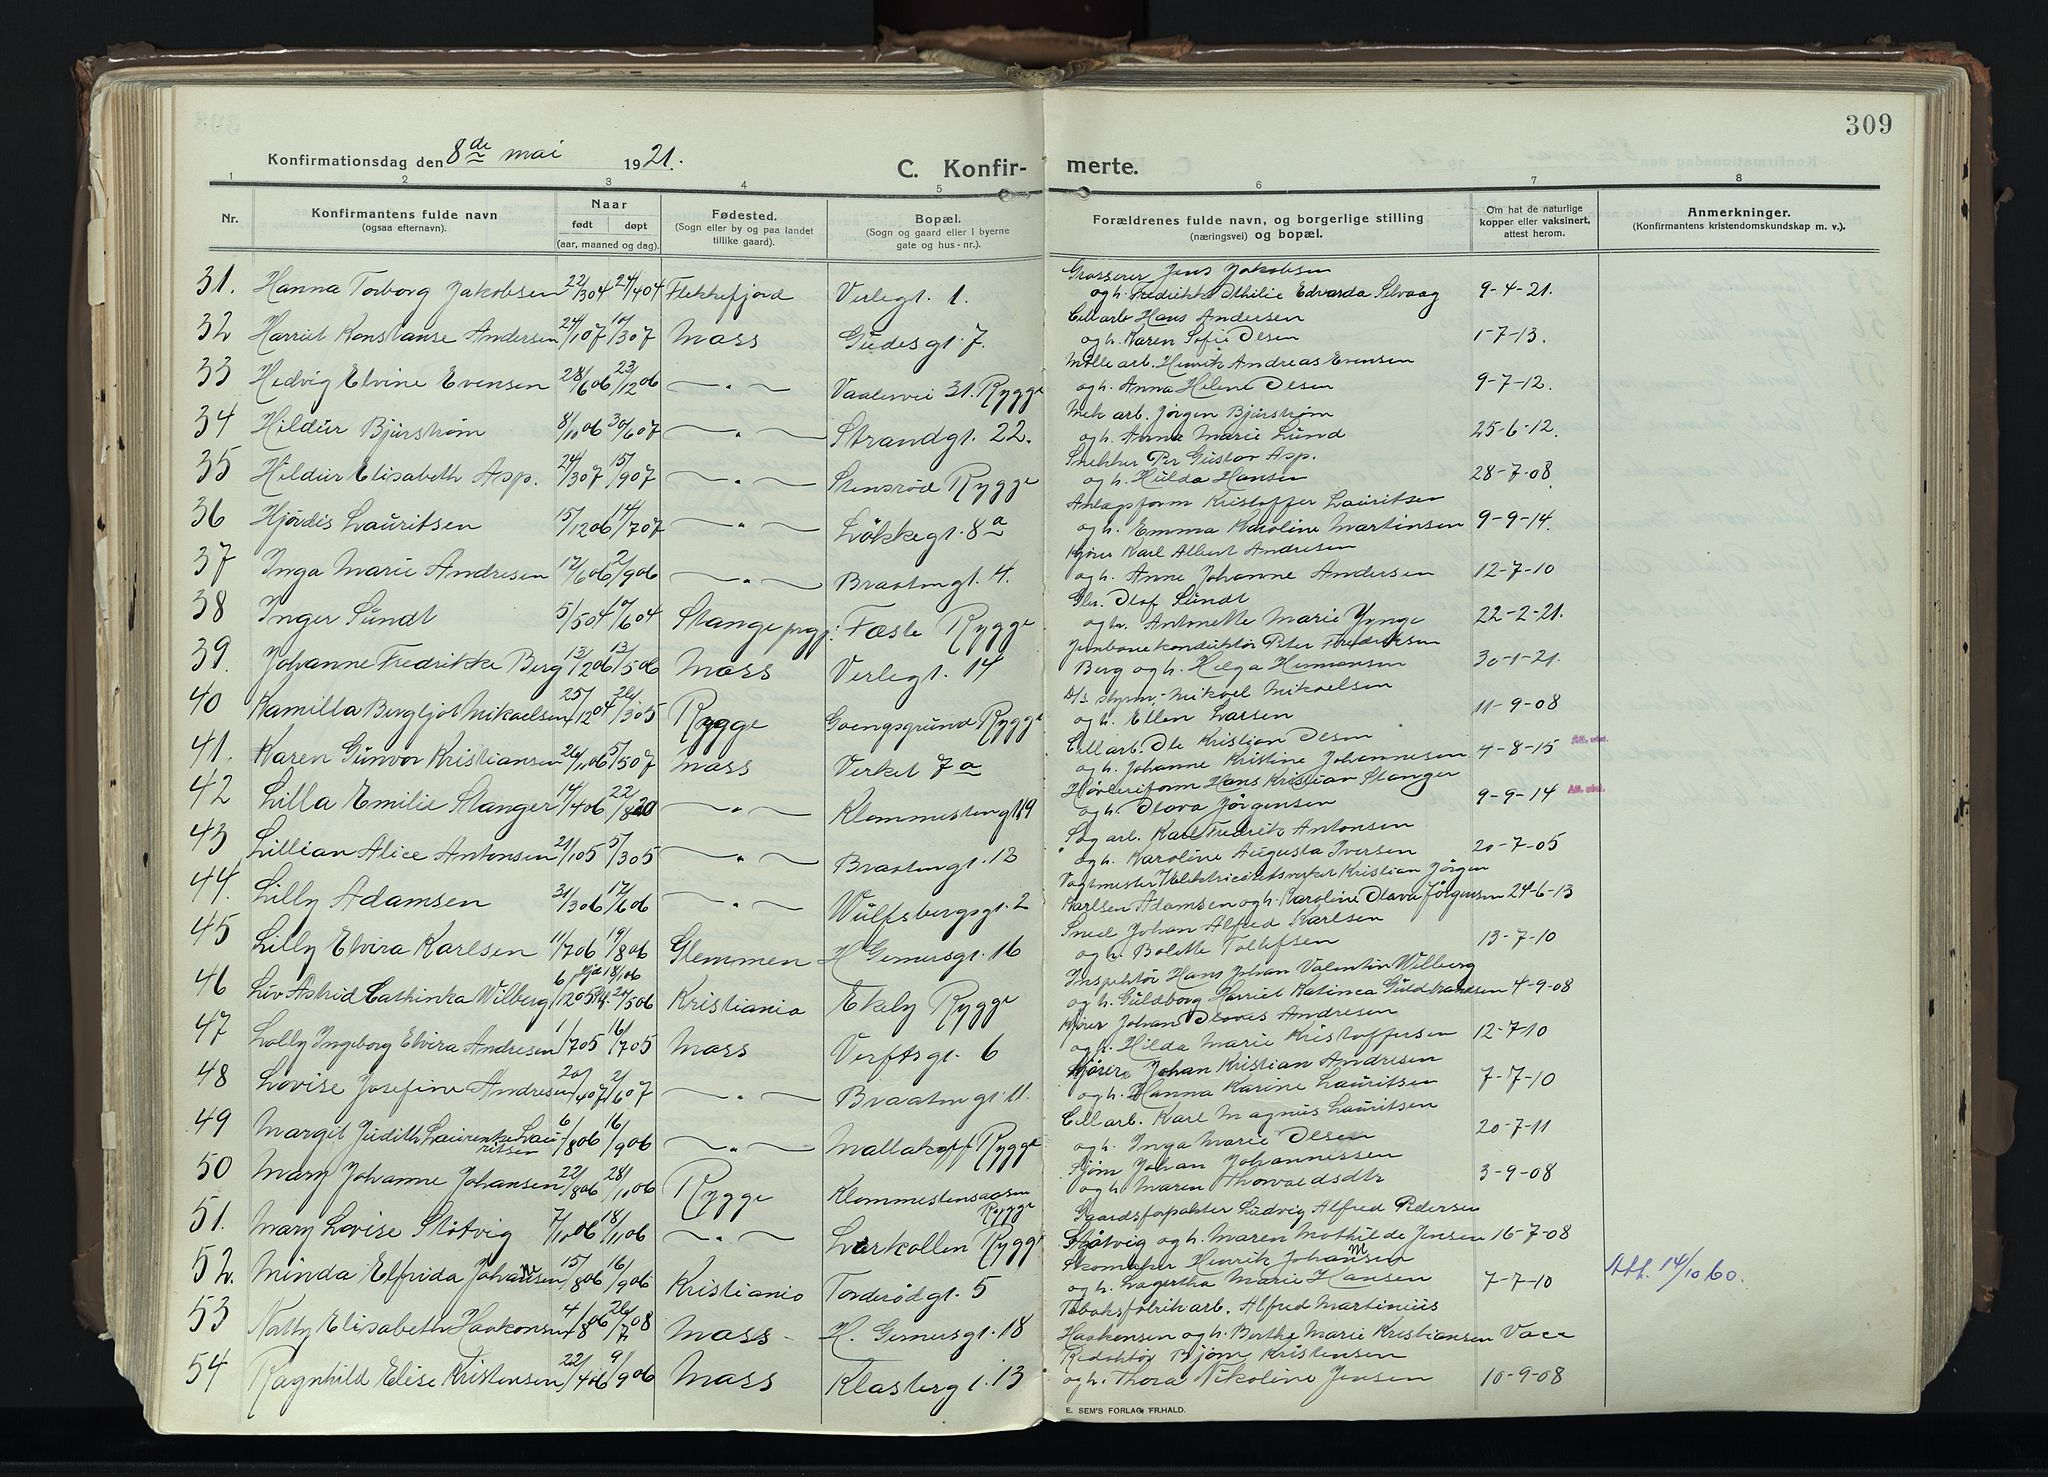 309
Konfirmationsdag den 8de mai 1921.
C. Konfir- merte.
1 2 3 4 5 6 7 8
Nr. Konfirmantens fulde navn (ogsaa efternavn). Naar født døpt (aar, maaned og dag). Fødested. (Sogn eller by og paa landet tillike gaard). Bopæl. (Sogn og gaard eller i byerne gate og hus-nr.). Forældrenes fulde navn, og borgerlige stilling (næringsvei) og bopæl. Om hat de naturlige kopper eller vaksinert, attest herom. Anmerkninger. (Konfirmantens kristendomskundskap m. v.).
31. Hanna Torborg Jakobsen 22/304 24/404 Flekkefjord Verlegt. 1. Grosserer Jens Jakobsen
og h. Fredrikke Othilie Edvarda Selvaag 9-4-21.
32 Harriet Konstanse Andersen 24/107 10/307 Moss Gudesgt. 7. Cell arb Hans Andersen
og h. Karen Sofie Olsen 1-7-13.
33 Hedvig Elvine Evensen 28/606 23/1206 —"— Vaalervei 31. Rygge Mølle arb. Henrik Andreas Evensen
og h. Anna Helene Olsen 9-7-12.
34 Hildur Bjurstrøm 8/1006 30/607 —"— Strandgt. 22. Mek arb. Jørgen Bjurstrøm
og h. Anna Marie Lund 25-6-12.
35 Hildur Elisabeth Asp. 24/307 15/907 —"— Stensrød Rygge Snekker Per Gustav Asp.
og h. Hulda Hansen 28-7-08.
36 Hjørdis Lauritsen 15/1206 14/707 —"— Løkkegt. 8a Anlægsform Kristoffer Lauritsen
og h. Emma Karoline Martinsen 9-9-14.
37 Inga Marie Andresen 12/606 2/906 —"— Braatengt. 4. Kjører Karl Albert Andresen
og h. Anne Johanne Andersen 12-7-10
38 Inger Sundt 5/504 10/604 Stange prgj: Fæste Rygge Olaf Sundt
og h. Antonette Marie Ynge 22-2-21.
39. Johanne Fredrikke Berg 13/1206 13/506 Moss Verlegt. 14 Jernbanekonduktør Peter Fredriksen
Berg og h. Helga Hermansen 30-1-21.
40 Kamilla Bergljot Mikaelsen 25/1204 26/305 Rygge Goengsgrund Rygge D/s styrm. Mikael Mikaelsen
og h. Ellen Larsen 11-9-08
41. Karen Gunvor Kristiansen 26/1106 5/507 Moss Verket 7a Cell arb. Ole Kristian Olsen
og h. Johanne Kristine Johannesen 4-8-15 Att. utst.
42 Lilla Emilie Stanger 14/406 22/820 —"— Klommestengt 19 Høvleriform Hans Kristian Stanger
og h. Olava Jørgensen 9-9-14 Att. utst.
43 Lillian Alice Antonsen 21/105 5/305 —"— Braatengt. 12 Sag arb. Karl Fredrik Antonsen
og h. Karoline Augusta Iversen 20-7-05
44. Lilly Adamsen 31/306 17/606 —"— Wulfsbergsgt. 2 Vagtmester v/Elektricitetsverket Kristian Jørgen
Karlsen Adamsen og h. Karoline Olava Jørgensen 24-6-13
45 Lilly Elvira Karlsen 11/706 19/806 Glemmen H Gernersgt. 16 Smed Johan Alfred Karlsen
og h. Bolette Tollefsen 13-7-10
46 Liv Astrid Cathinka Wilberg 6/1205 24/506 Kristiania Ekely Rygge Inspektør Hans Johan Valentin Wilberg
og h. Guldborg Harriet Katinca Guldbrandsen 4-9-08
47 Lolly Ingeborg Elvira Andresen 1/705 16/705 Moss Verftsgt. 6 Kjører Johan Olaves Andresen
og h. Hilda Marie Kristoffersen 12-7-10
48 Lovise Josefine Andresen 20/407 2/607 —"— Braatengt. 11. Kjører Johan Kristian Andresen
og h. Hanna Karine Lauritsen 7-7-10
49 Margit Judith Laurenke Lau
ritsen 6/806 16/906 —"— Mallakoff Rygge Cell arb. Karl Magnus Lauritsen
og h. Inga Marie Olsen 20-7-11
50 Mary Johanne Johansen 22/806 28/1006 Rygge Klommestensaasen
Rygge Sjøm Johan Johannessen
og h. Maren Thorvaldsdtr 3-9-08
51. Mary Lovise Støtvig 7/1006 18/1106 —"— Larkollen Rygge Gaardsforpakter Ludvig Alfred Pedersen
Støtvig og h. Maren Mathilde Jensen 16-7-08
52. Minda Elfrida Johansen 15/806 16/906 Kristiania Torderødgt. 5 Skomaker Henrik Johansen
og h. Lagertha Marie Hansen 7-7-10 Att. 14/10 60.
53 Natty Elisabeth Haakonsen 4/806 26/708 Moss - H. Gernersgt. 18 Tobaksfabrikarb. Alfred Martinius
Haakonsen og h. Berthe Marie Kristiansen Vace
54 Ragnhild Elise Kristensen 22/406 9/906 Moss Klasbergt. 13 Redaktør Bjørn Kristensen
og h. Thora Nikoline Jensen 10-9-08
E. SEM'S FORLAG, FR.HALD.